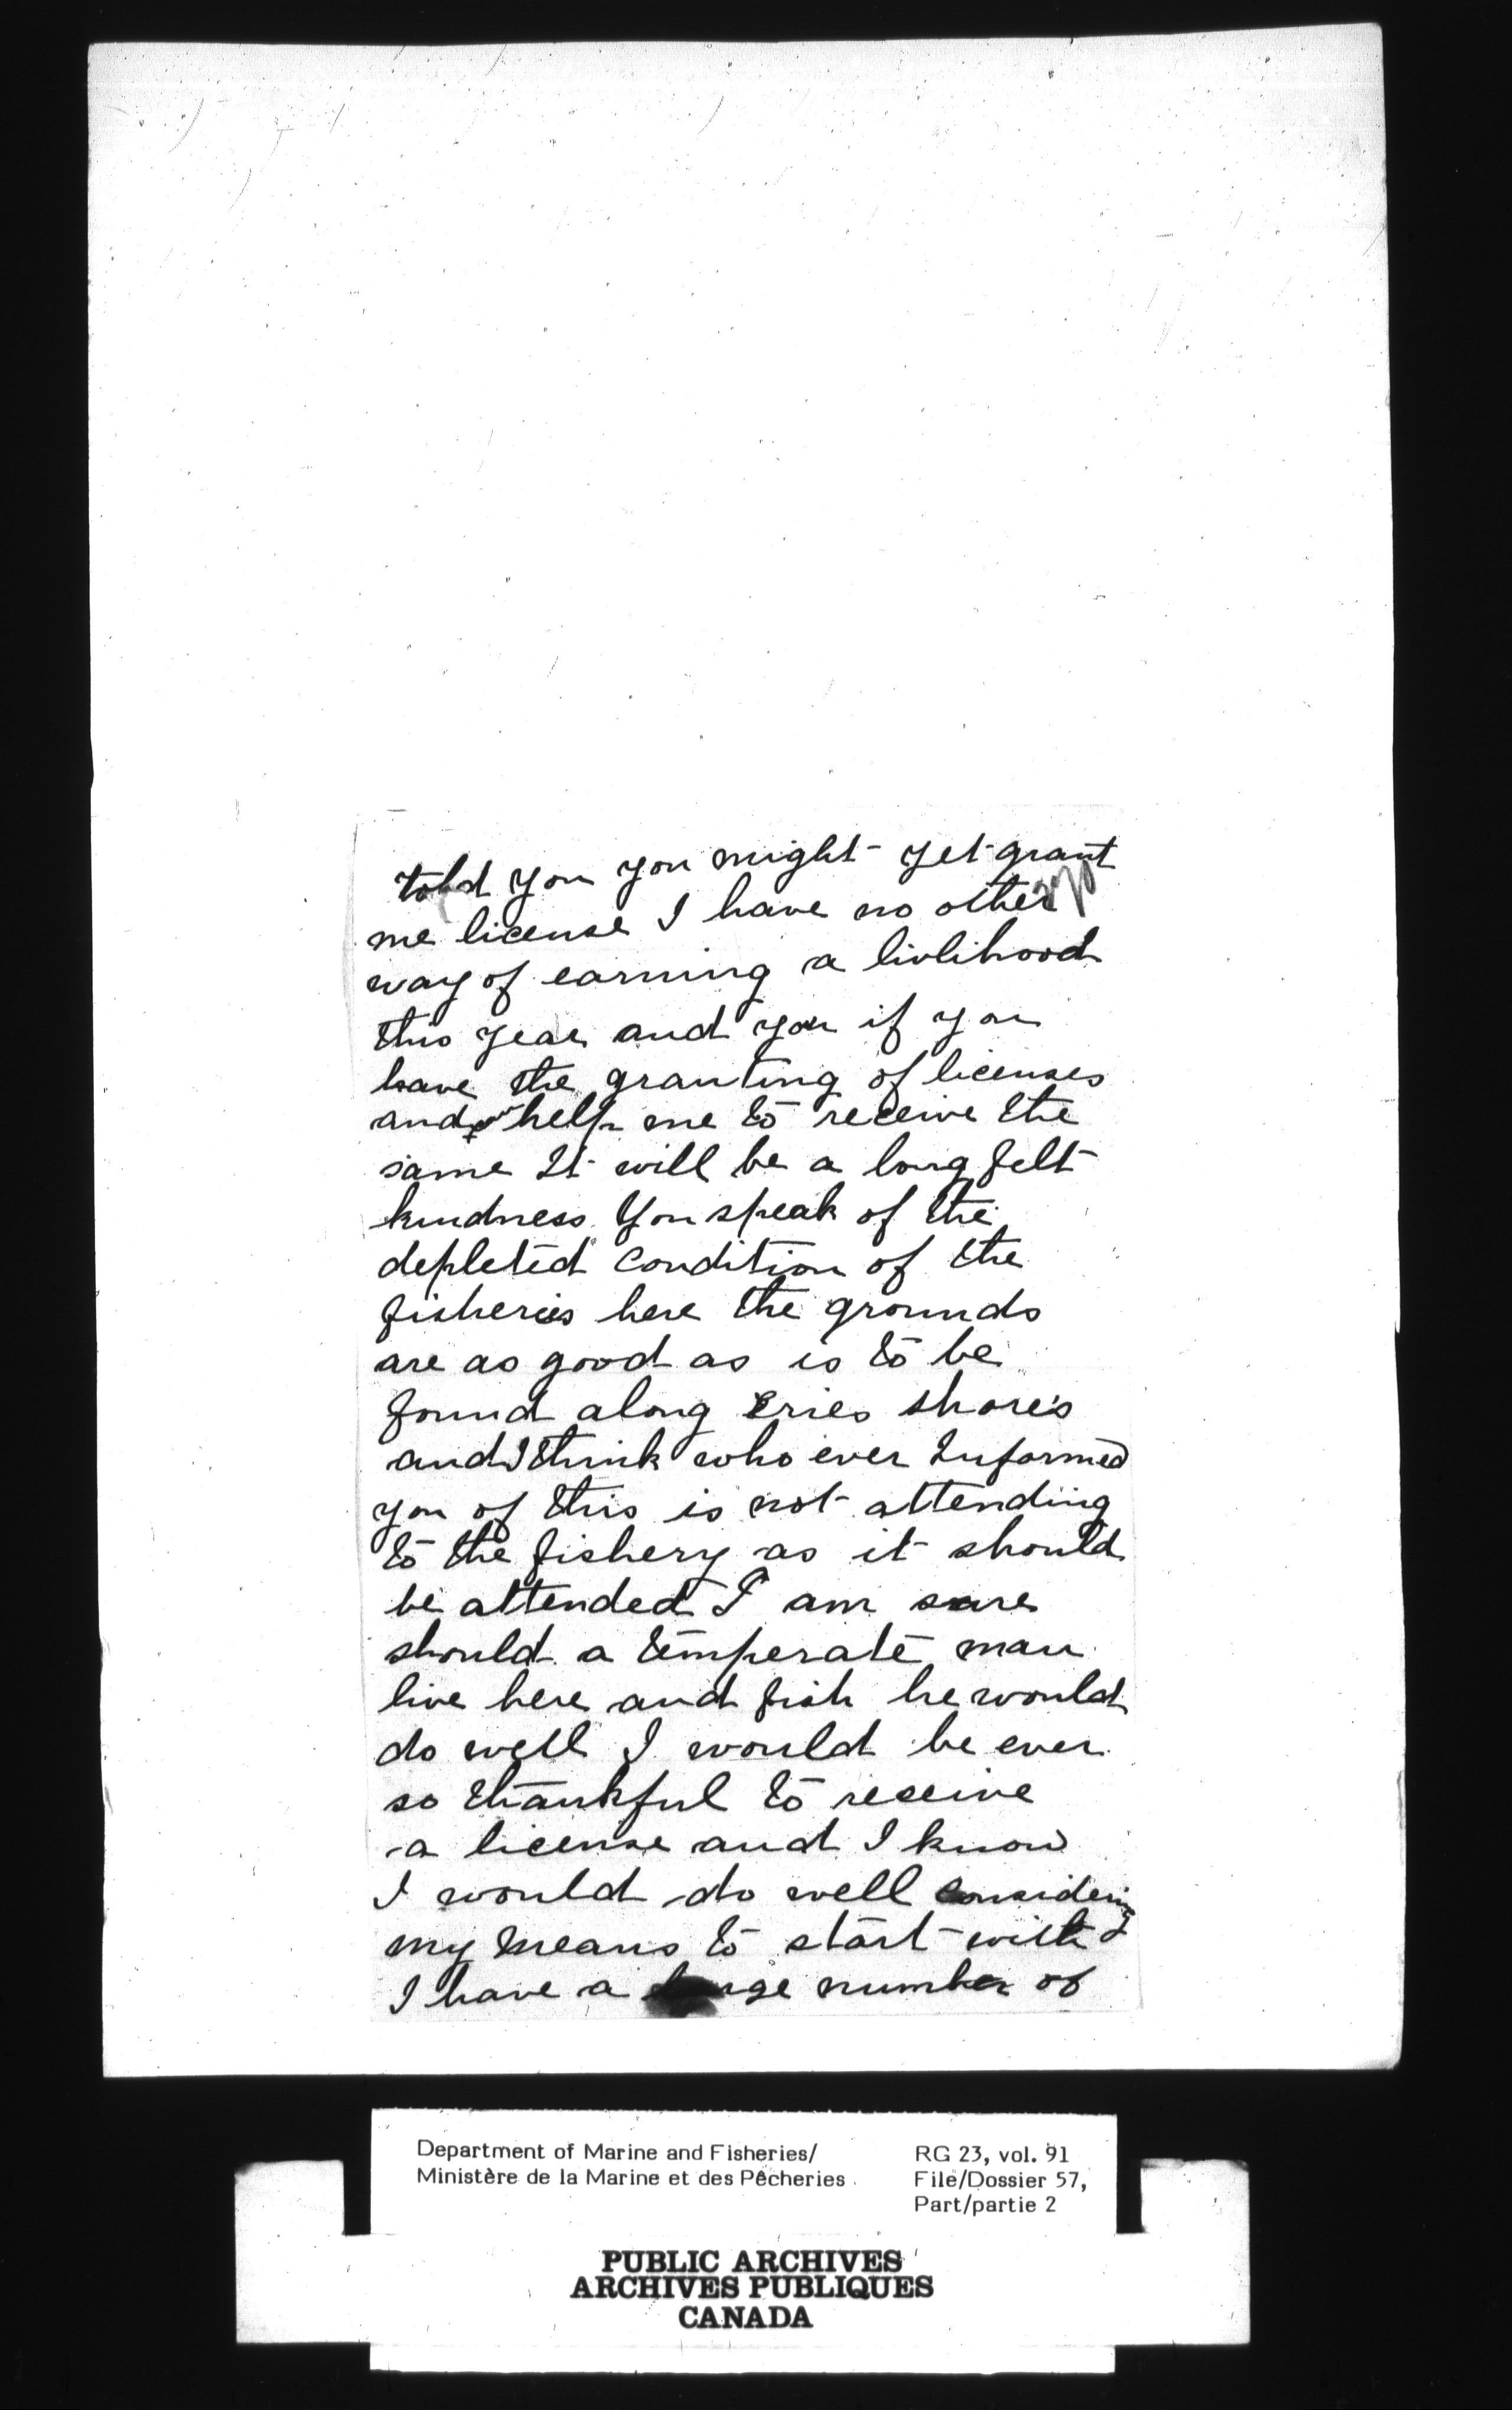 told you you might yet grant
me license I have no other
way of earning a livlihood
this year and you if you
have the granting of licenses
and help me to receive the
same It will be a long felt
kindness. You speak of the
depleted condition of the
fisheries here the grounds
are as good as is to be
found along Eries shores
and I think who ever Informed
you of this is not attending
to the fishery as it should
be attended I am sure
should a temperate man
live here and fish he would
do well I would be ever
so thankful to receive
a license and I know
I would do well considering
my means to start with
I have a large number of
Department of Marine and Fisheries/
Ministère de la Marine et des Pêcheries
RG 23, vol. 91
File/Dossier 57,
Part/partie 2
PUBLIC ARCHIVES
ARCHIVES PUBLIQUES
CANADA